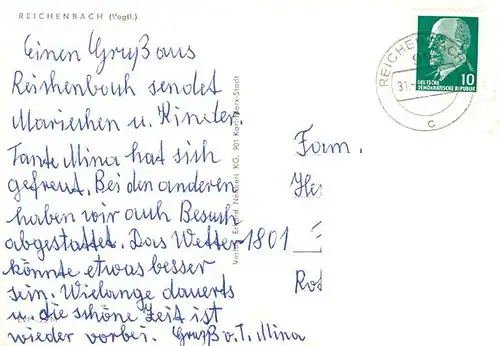 REICHENBACH (Vogtl.)
Einen Gruß aus
Reichenbach sendet
Mariechen u. Kinder.
Tante Mina hat sich
gefreut. Bei den anderen
haben wir auch Besuch
abgestattet. Das Wetter
könnte etwas besser
sein. Wielange dauerts
u. die schöne Zeit ist
wieder vorbei. Gruß v. T. Mina
KG, 901 Karl-Marx-Stadt
REICHENBACH
31.
c
10
DEUTSCHE
DEMOKRATISCHE REPUBLIK
Fam.
He
1801
Rot